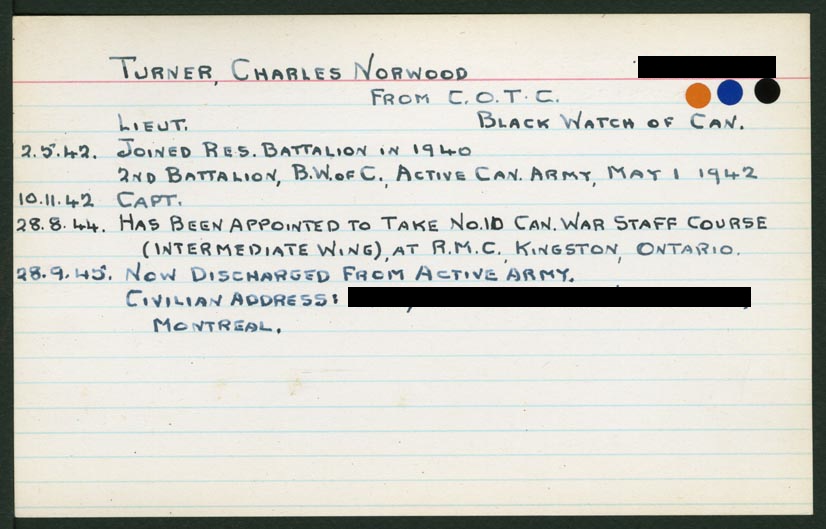 TURNER, CHARLES NORWOOD
FROM C.O.T.C.
LIEUT. BLACK WATCH OF CAN.
2.5.42. JOINED RES. BATTALION IN 1940
2ND BATTALION, B.W.OF C., ACTIVE CAN. ARMY, MAY 1 1942
10.11.42 CAPT.
28.8.44. HAS BEEN APPOINTED TO TAKE NO.10 CAN. WAR STAFF COURSE
(INTERMEDIATE WING), AT R.M.C., KINGSTON, ONTARIO.
28.9.45. NOW DISCHARGED FROM ACTIVE ARMY.
CIVILIAN ADDRESS:
MONTREAL.